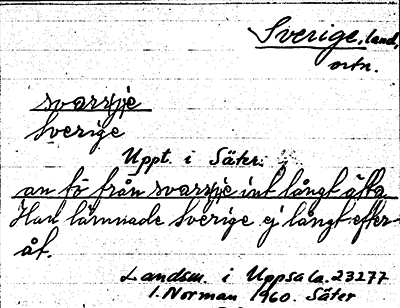 Sverige, land,
ortn.
svarrje
Sverige
Uppt. i Säter.
an fö från svarrje int långt äfta
Han lämnade Sverige ej långt efter-
åt.
Landsm. i Uppsala. 23277
I. Norman 1960. Säter